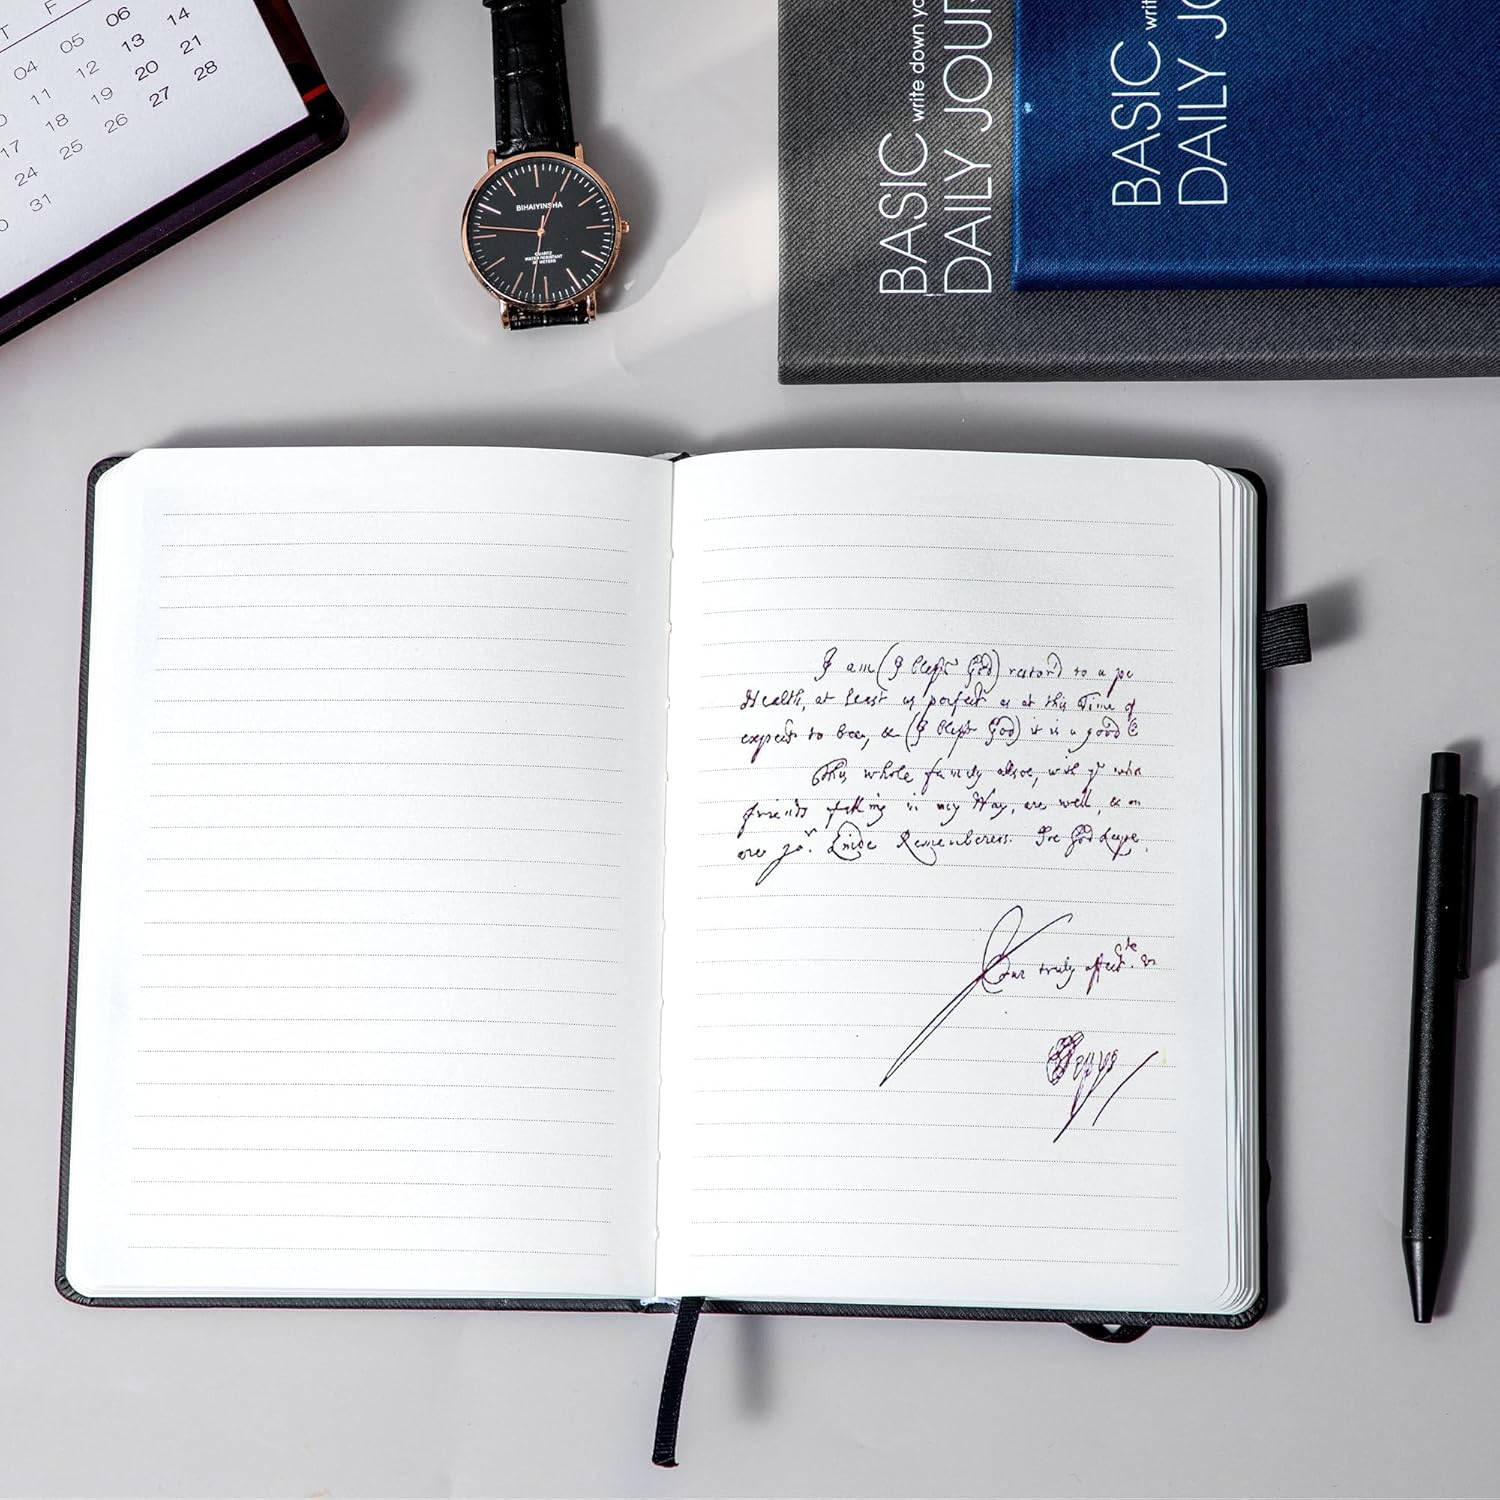 T F
06
04 05 14
11 12 13 21
17 18 19 20 28
24 25 26 27
31
BIHAIYINSHA
QUARTZ
WATER RESISTANT
BASIC write down yo
DAILY JOUR
BASIC wri
DAILY JO
I am (I bless God) restor'd to a pe
Health, at least as perfect as at this Time of
expect to bee, & (I bless God) it is a good
This whole family alsoe, with yr
friends falling in my Way, are well, &
are yor. Kinde Rememberers. The God keepe
Your truly affecte. &
Pepys